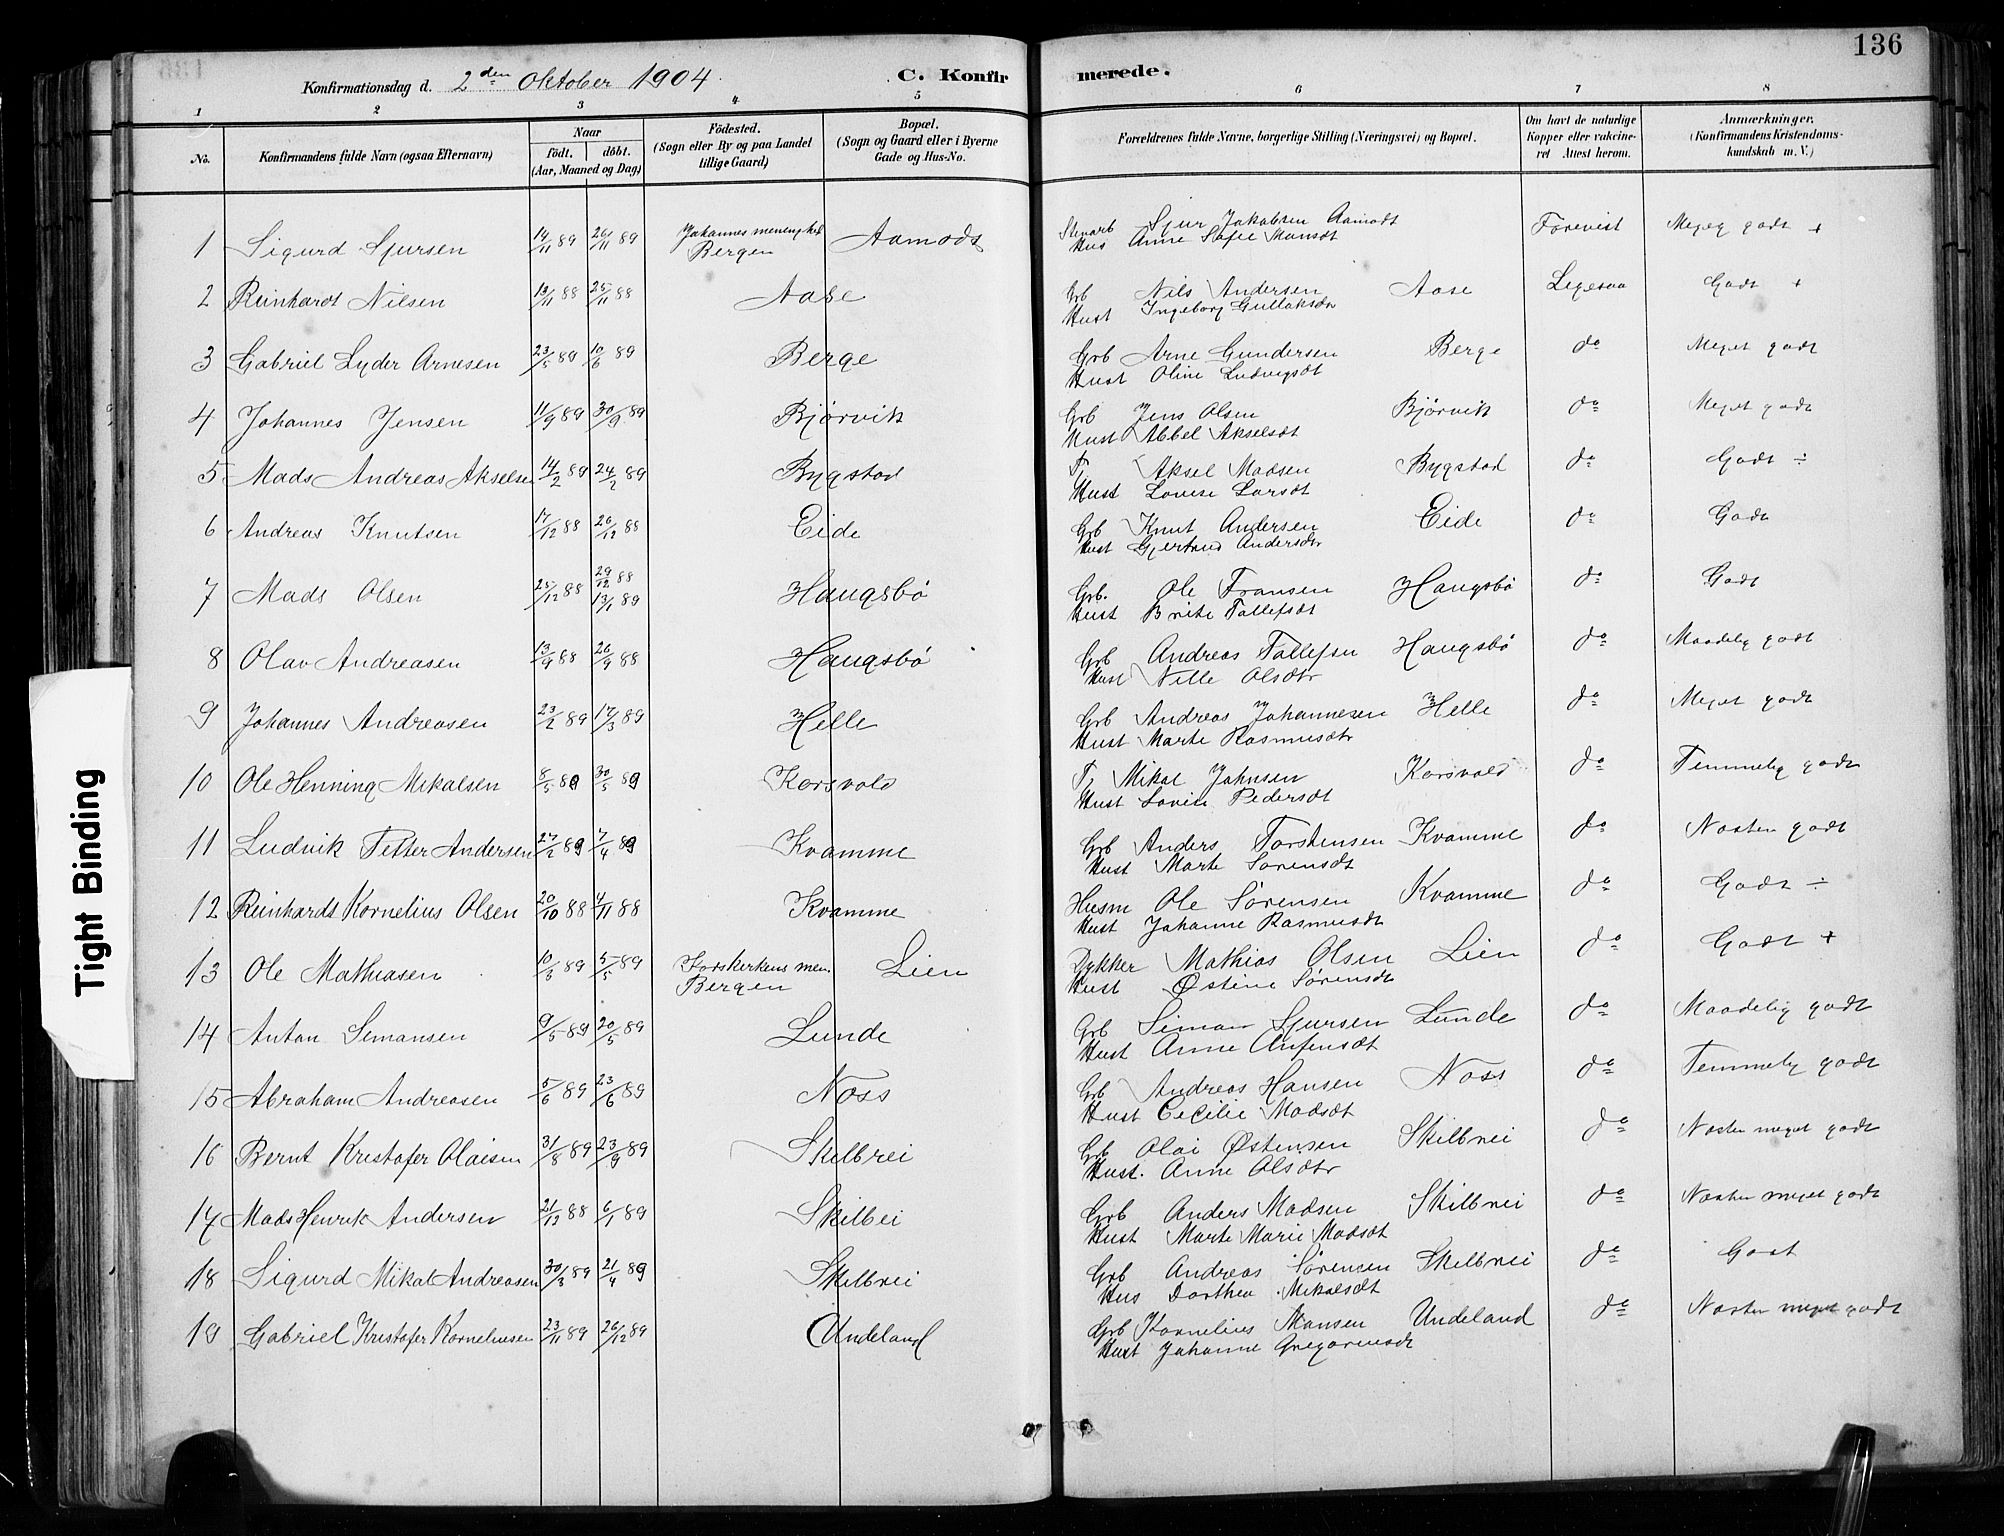 136
Konfirmationsdag d. 2den Oktober 1904. C. Konfirmerede.
1 2 3 4 5 6 7 8
No. Konfirmandens fulde Navn (ogsaa Efternavn) Naar født. døbt. (Aar, Maaned og Dag) Födested. (Sogn eller By og paa Landet tillige Gaard) Bopæl. (Sogn og Gaard eller i Byerne Gade og Hus-No. Forældrenes fulde Navne, borgerlige Stilling (Næringsvei) og Bopæl. Om havt de naturlige Kopper eller vakcineret Attest herom. Anmærkninger. (Konfirmandens Kristendomskundskab m. V.)
1 Sigurd Sjursen 14/11 89 26/11 89 Johannes menen Bergen Aamodt Sjur Jakobsen Aamodt Forevist Meget godt +
Hus Anne Sofie Monsdt
2 Reinhardt Nilsen 13/11 88 25/11 88 Aase Grb Nils Andersen Aase Ligesaa Godt +
Hust Ingeborg Gullaksdtr
3 Gabriel Lyder Arnesen 23/5 89 10/6 89 Berge Grb Arne Gundersen Berge do Meget godt
Hust Oline Ludvigsdt
4 Johannes Jensen 11/9 89 30/9 89 Bjørvik Grb Jens Olsen Bjørvik do Meget godt
Hust Abbel Akselsdt
5 Mads Andreas Akselsen 14/2 89 24/2 89 Bygstad F, Aksel Madsen Bygstad do Godt ÷
Hust Lovise Larsdt
6 Andreas Knutsen 17/12 88 26/12 88 Eide Grb Knut Andersen Eide do Godt
Hust Gjertrud Andersdtr
7 Mads Olsen 25/12 88 29/12 88 13/1 89 Haugsbø Grb. Ole Fransen Haugsbø do Godt
Hust Brite Tollefsdt
8 Olav Andreasen 13/9 88 26/9 88 Haugsbø Grb Andreas Tollefsen Haugsbø do Maadelig godt
Hust Nille Olsdtr
9 Johannes Andreasen 23/2 89 17/3 89 Helle Grb Andreas Johannesen Helle do Meget godt
Hust Marte Rasmusdtr
10 Ole Henning Mikalsen 8/5 89 30/5 89 Korsvold F, Mikal Johnsen Korsvold do Temmelig godt
Hust Lovise Pedersdt
11 Ludvik Petter Andersen 27/2 89 7/4 89 Kvamme Grb Anders Torstensen Kvamme do Næsten godt
Hust Marte Sørensdt
12 Reinhardt Kornelius Olsen 20/10 88 4/11 88 Kvamme Husm Ole Sørensen Kvamme do Godt ÷
Hust Johanne Rasmusdt
13 Ole Mathiasen 10/3 89 5/5 89 Korskirkens men. Bergen Lien Dykker Mathias Olsen Lien do Godt +
Hust Østine Sørensdt
14 Anton Simonsen 9/5 89 20/5 89 Lunde Grb Simon Sjursen Lunde do Maadelig godt
Hust Anne Anfensdt
15 Abraham Andreasen 5/6 89 23/6 89 Noss Grb Andreas Hansen Noss do Temmelig godt
Hust Cecilie Madsdt
16 Bernt Kristofer Olaisen 31/8 89 23/9 89 Skilbrei Grb Olai Østensen Skilbrei do Næsten meget godt
Hust. Anne Olsdtr
17 Mads Henrik Andersen 21/12 88 6/1 89 Skilbei Grb Anders Madsen Skilbrei do Næsten meget godt
Hust Marte Marie Madsdt
18 Sigurd Mikal Andreasen 30/3 89 21/4 89 Skilbrei Grb Andreas Sørensen Skilbrei do Godt
Hus Dorthea Mikalsdt
19 Gabriel Kristofer Korneliusen 23/11 89 26/12 89 Undeland Grb Kornelius Monsen Undeland do Næsten meget godt
Hust Johanne Gregoriusdt
Tight Binding